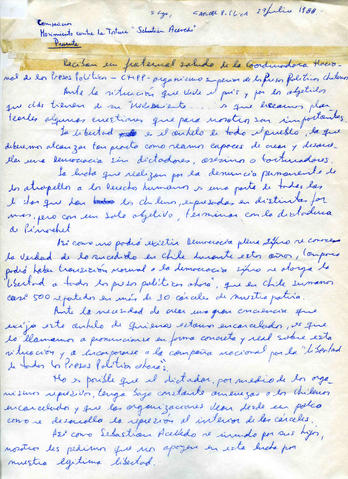 Stgo, Carcel P. 29/julio 1988
Compañeros
Movimiento contra la Tortura "Sebastian Acevedo"
Presente
Reciban un fraternal saludo de la Coordinadora Nacio-
nal de los Presos Politicos - CNPP - organismo superior de los Presos Politicos chilenos
Ante la situación que vive el pais y por los objetivos
que cada tienen de su Movimiento es que queremos plan-
tearles algunas cuestiones que para nosotros son importantes.
La libertad es el anhelo de todo el pueblo, la que
debemos alcanzar tan pronto como seamos capaces de crear y desarro-
llar una democracia sin dictadores, asesinos o torturadores.
La lucha que realizan por la denuncia permanente de
los atropellos a los derechos humanos es una parte de todas las
luchas que dan los chilenos, expresadas en distintas for-
mas, pero con un solo objetivo, terminar con la dictadura
de Pinochet
Asi como no podrá existir democracia plena si no se conoce
la verdad de lo sucedido en Chile durante estos años, tampoco
podrá haber transición normal a la democracia si no se otorga la
libertad a todos los presos politicos ahora, que en Chile sumamos
casi 500 repartidos en más de 30 cárceles de nuestra patria.
Ante la necesidad de crear una gran conciencia que
exija este anhelo de quienes estamos encarcelados, es que
lo llamamos a pronunciarse en forma concreta y real sobre esta
situación y a incorporarse a la campaña nacional por la "libertad
de todos los Presos Politicos ahora".
No es posible que el dictador, por medio de los orga-
nismos represivos, tenga bajo constante amenazas a los chilenos
encarcelados y que las organizaciones vean desde un palco
como se desarrolla la represión al interior de las cárceles.
Asi como Sebastian Acevedo se inmoló por sus hijos,
nosotros les pedimos que nos apoyen en esta lucha por
nuestra legitima libertad.